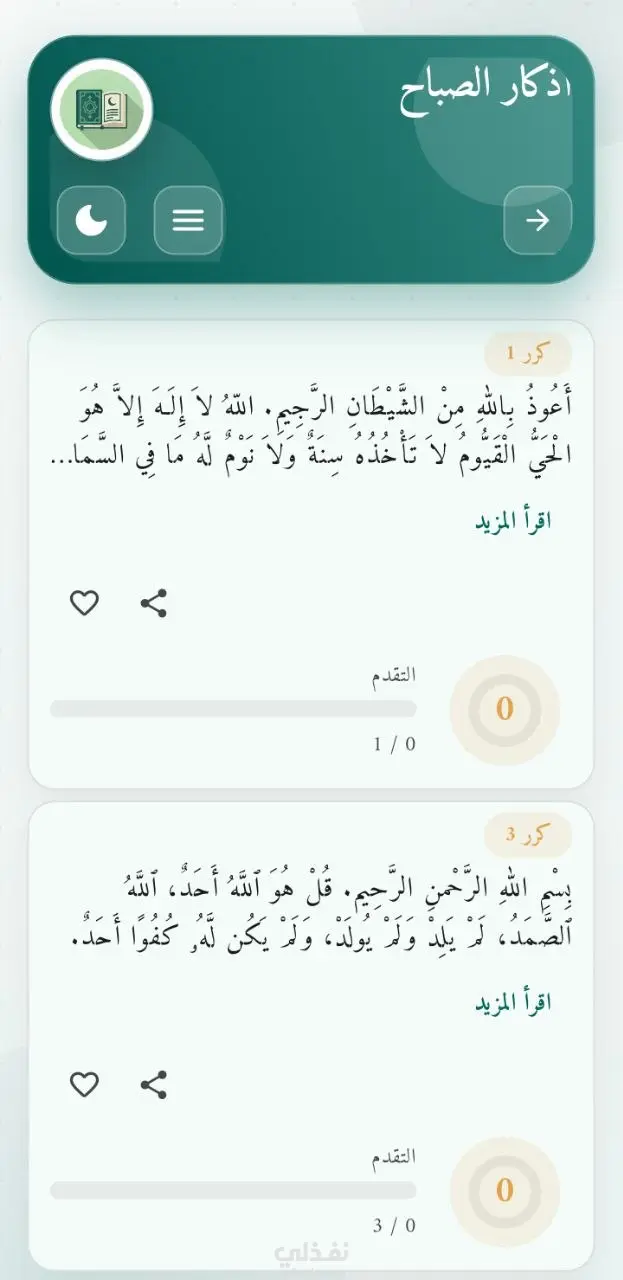 اذكار الصباح
كرر 1
أَعُوذُ بِاللهِ مِنْ الشَّيْطَانِ الرَّجِيمِ. اللّهُ لاَ إِلَـهَ إِلاَّ هُوَ
الْحَيُّ الْقَيُّومُ لاَ تَأْخُذُهُ سِنَةٌ وَلاَ نَوْمٌ لَّهُ مَا فِي السَّمَا...
اقرأ المزيد
التقدم
0
1 / 0
كرر 3
بِسْمِ اللهِ الرَّحْمنِ الرَّحِيم. قُلْ هُوَ ٱللَّهُ أَحَدٌ، ٱللَّهُ
ٱلصَّمَدُ، لَمْ يَلِدْ وَلَمْ يُولَدْ، وَلَمْ يَكُن لَّهُۥ كُفُوًا أَحَدٌ.
اقرأ المزيد
التقدم
0
3 / 0
نفذلي